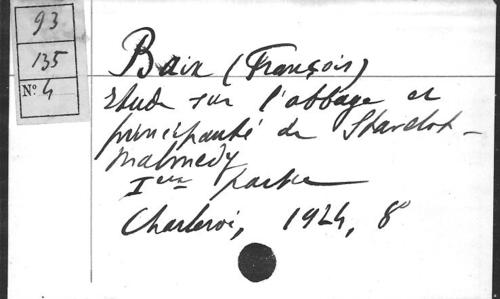 93
135
N° 4
Baix (François)
Etude sur l'abbaye et
principauté de Stavelot-
Malmedy
Ière partie
Charleroi, 1924, 8°